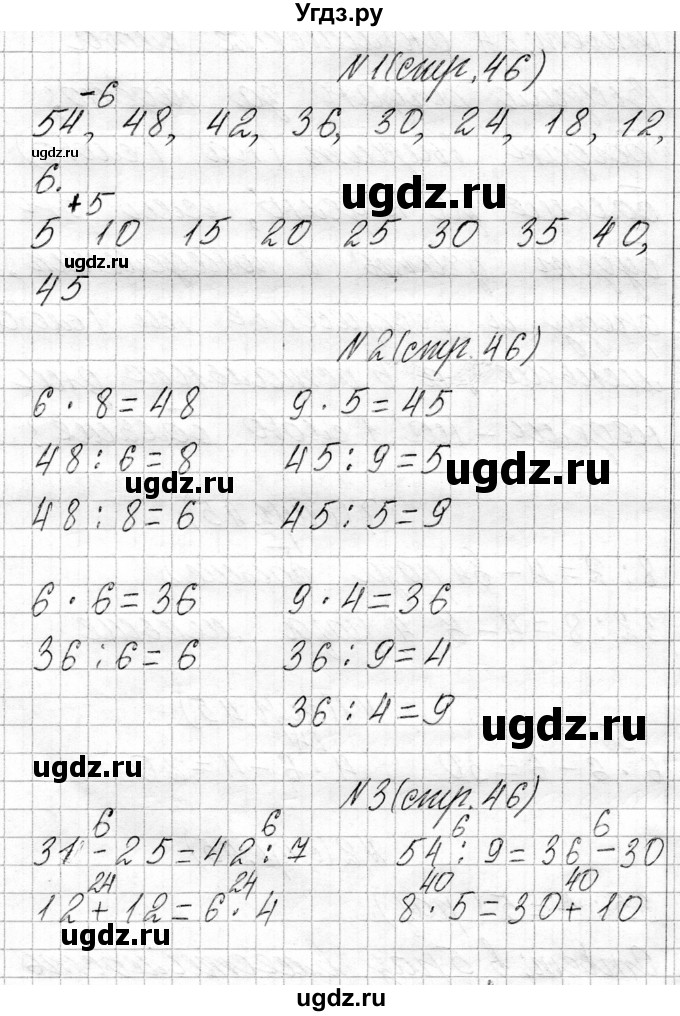 Угдз.ру
N1(стр.46)
-6
54, 48, 42, 36, 30, 24, 18, 12,
ugdz.ru
6.
ugdz.ru
+5
5 10 15 20 25 30 35 40,
ugdz.ru
45
N2(стр.46)
6 · 8 = 48 9 · 5 = 45
48 : 6 = 8 45 : 9 = 5
ugdz.ru ugdz.ru
48 : 8 = 6 45 : 5 = 9
6 · 6 = 36 9 · 4 = 36
36 : 6 = 6 36 : 9 = 4
36 : 4 = 9
ugdz.ru
ugdz.ru
N3(стр.46)
6 6 6 6
31 - 25 = 42 : 7 54 : 9 = 36 - 30
24 24 40 40
12 + 12 = 6 · 4 8 · 5 = 30 + 10
ugdz.ru
ugdz.ru